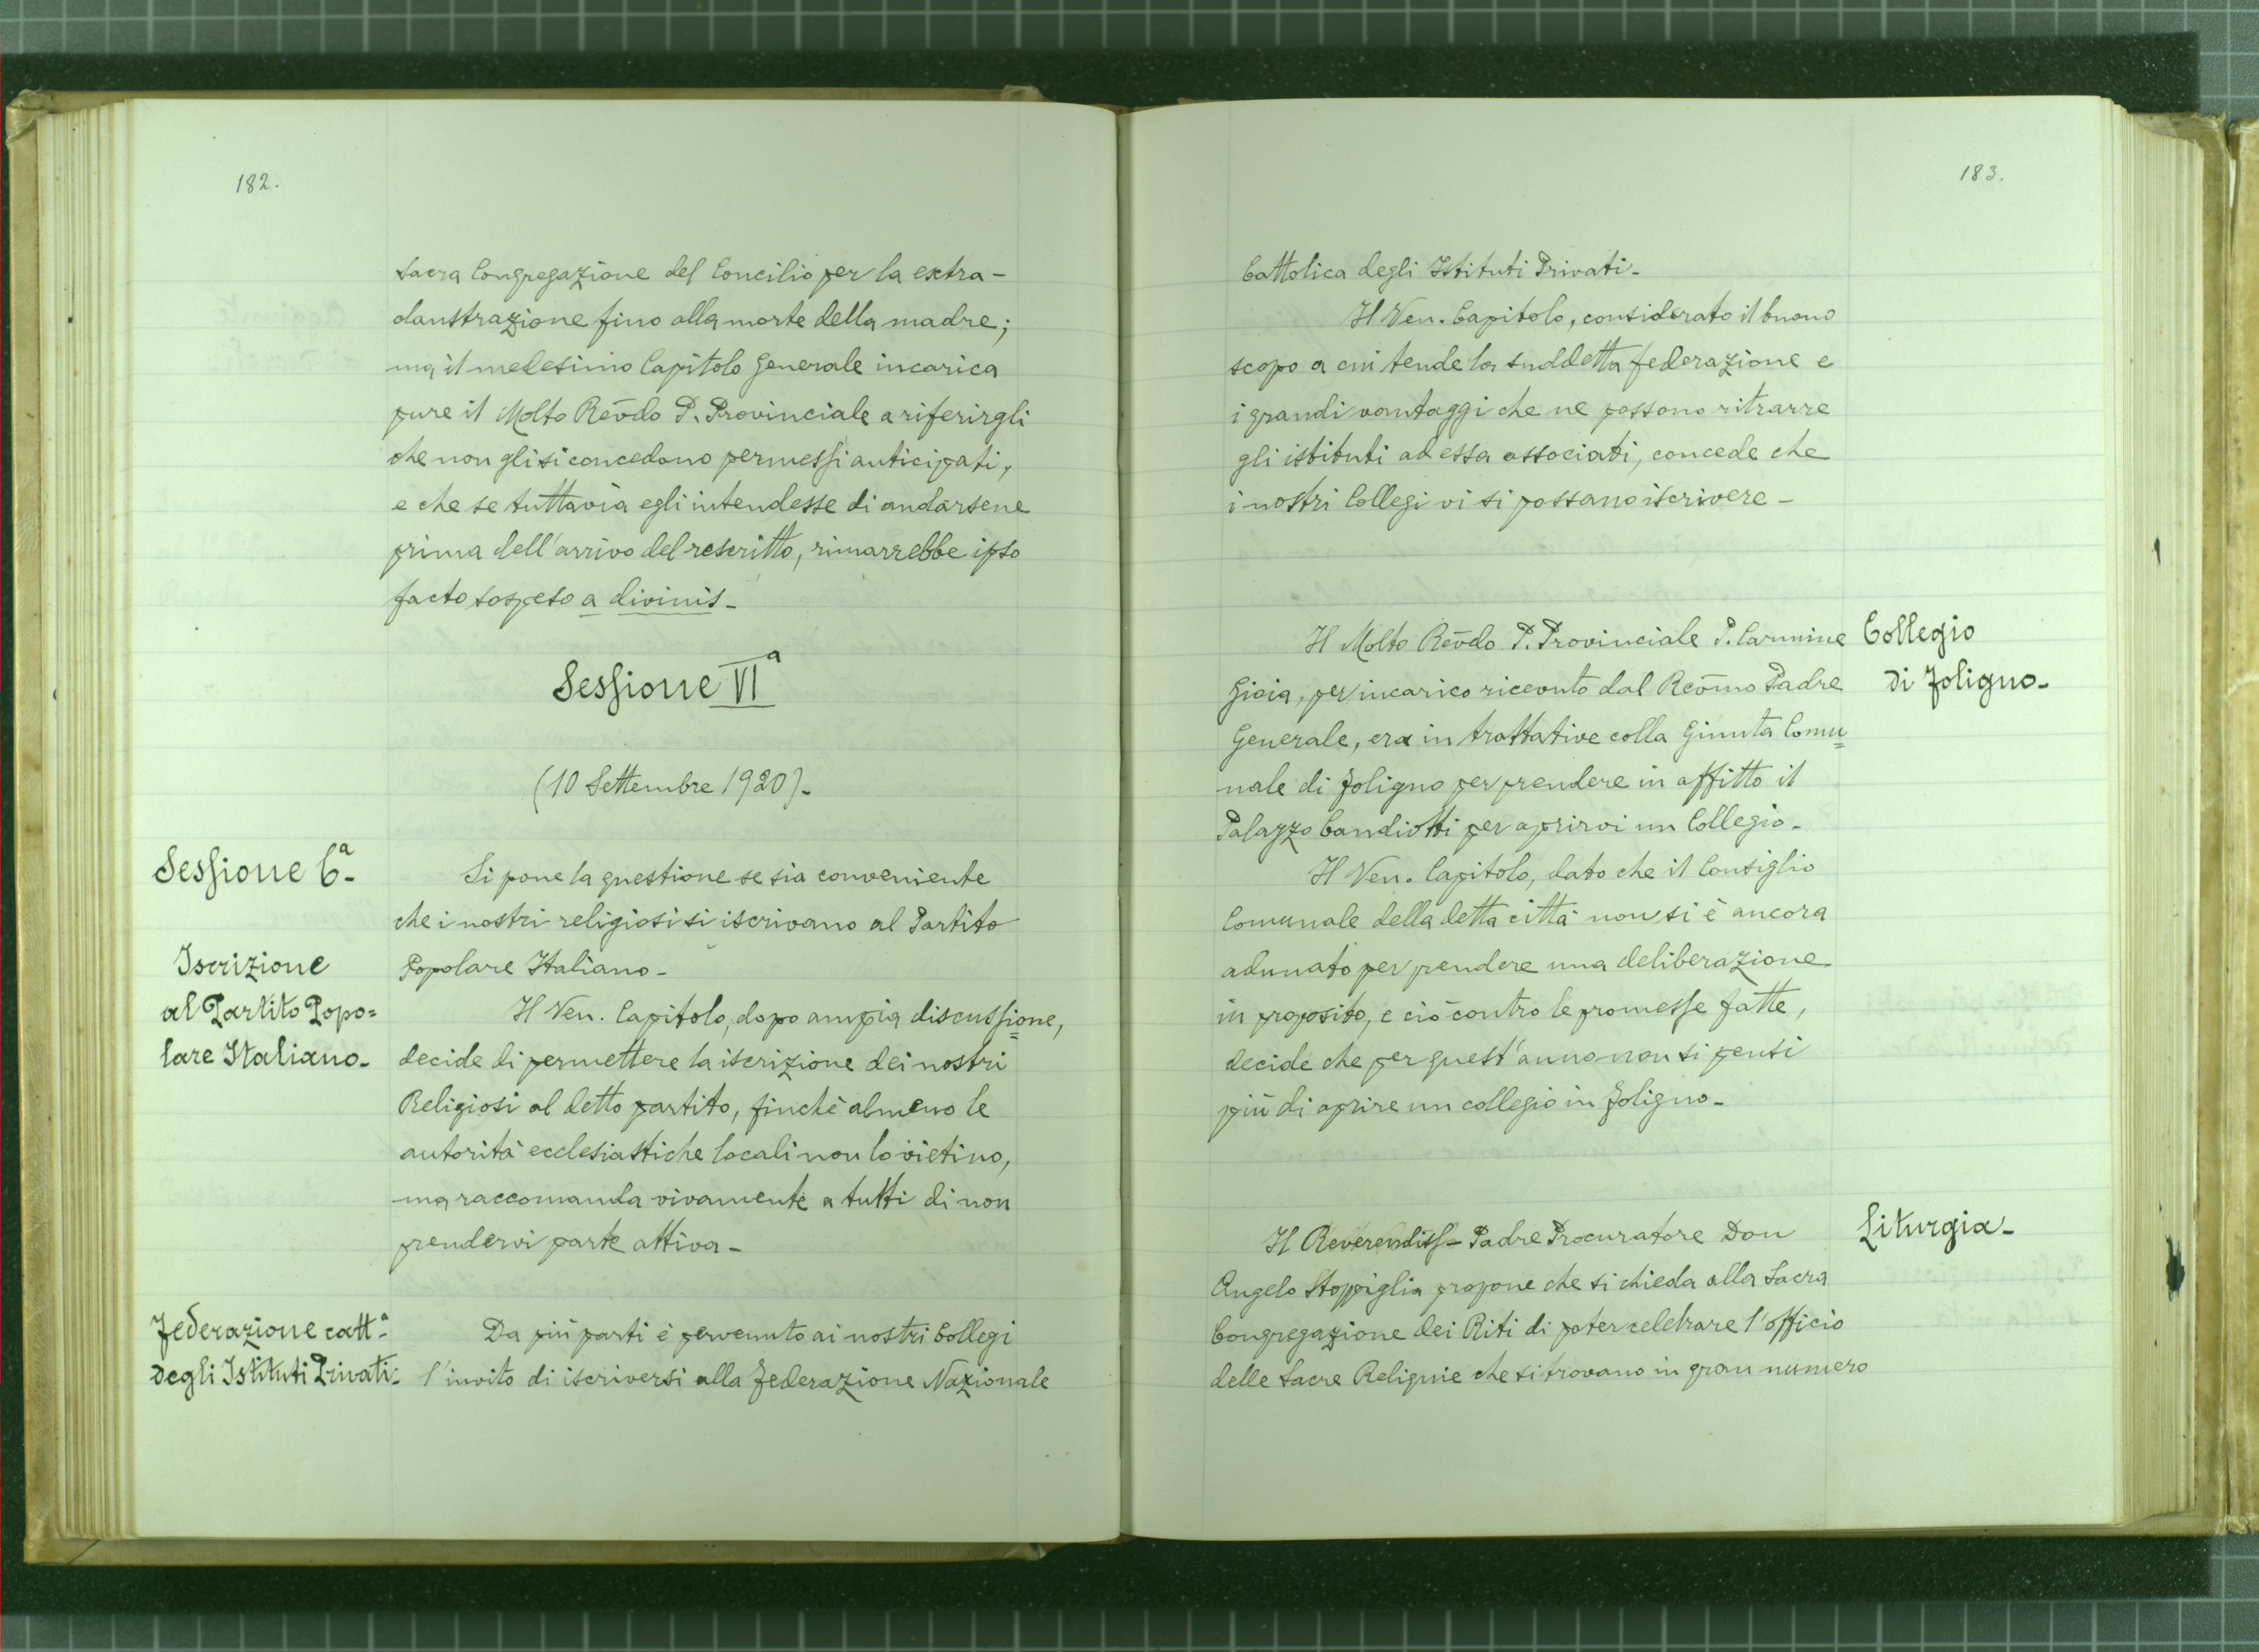 182.
Sacra Congregazione del Concilio per la extra-
claustrazione fino alla morte della madre;
ma il medesimo Capitolo Generale incarica
pure il Molto Rev̄do P. Provinciale a riferirgli
che non gli si concedono permessi anticipati,
e che se tuttavia egli intendesse di andarsene
prima dell'arrivo del rescritto, rimarrebbe ipso
facto sospeso a divinis-
Sessione VIª
(10 Settembre 1920)-
Sessione 6ª-
Si pone la questione se sia conveniente
che i nostri religiosi si iscrivano al Partito
Popolare Italiano-
Iscrizione
al Partito Popo=
lare Italiano-
Il Ven. Capitolo, dopo ampia discussione,
decide di permettere la iscrizione dei nostri
Religiosi al detto partito, finchè almeno le
autorità ecclesiastiche locali non lo vietino,
ma raccomanda vivamente a tutti di non
prendervi parte attiva-
Federazione catt.ª
degli Istituti Privati-
Da più parti è pervenuto ai nostri Collegi
l'invito di iscriversi alla Federazione Nazionale
183.
Cattolica degli Istituti Privati-
Il Ven. Capitolo, considerato il buono
scopo a cui tende la suddetta federazione e
i grandi vantaggi che ne possono ritrarre
gli istituti ad essa associati, concede che
i nostri Collegi vi si possano iscrivere-
Collegio
di Foligno-
Il Molto Rev̄do P. Provinciale P. Carmine
Gioia, per incarico ricevuto dal Rev̄mo Padre
Generale, era in trattative colla Giunta Comu=
nale di Foligno per prendere in affitto il
Palazzo Candiotti per aprirvi un Collegio-
Il Ven. Capitolo, dato che il Consiglio
Comunale della detta città non si è ancora
adunato per prendere una deliberazione
in proposito, e ciò contro le promesse fatte,
decide che per quest'anno non si pensi
più di aprire un collegio in Foligno-
Liturgia-
Il Reverendiss- Padre Procuratore Don
Angelo Stoppiglia propone che si chieda alla Sacra
Congregazione dei Riti di poter celebrare l'officio
delle Sacre Reliquie che si trovano in gran numero